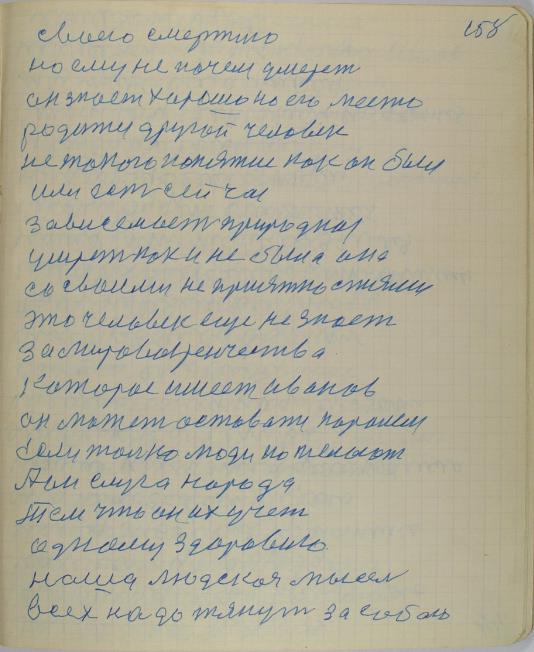 158
своего смертию
но ему не почем умерет
он знает хорошо но его место
родити другой человек
не такого понятие как он был
или ест сей час
зависемост природная
умрет как и не была она
со своими не приятностями
это человек еще не знает
За мировозренчества
Которое имеет иванов
он может остовати
Если толко люди пожелают
Я им слуга народа
Тем что он их учет
одному здоровию
наша людская мысел
всех надо тянут за собою